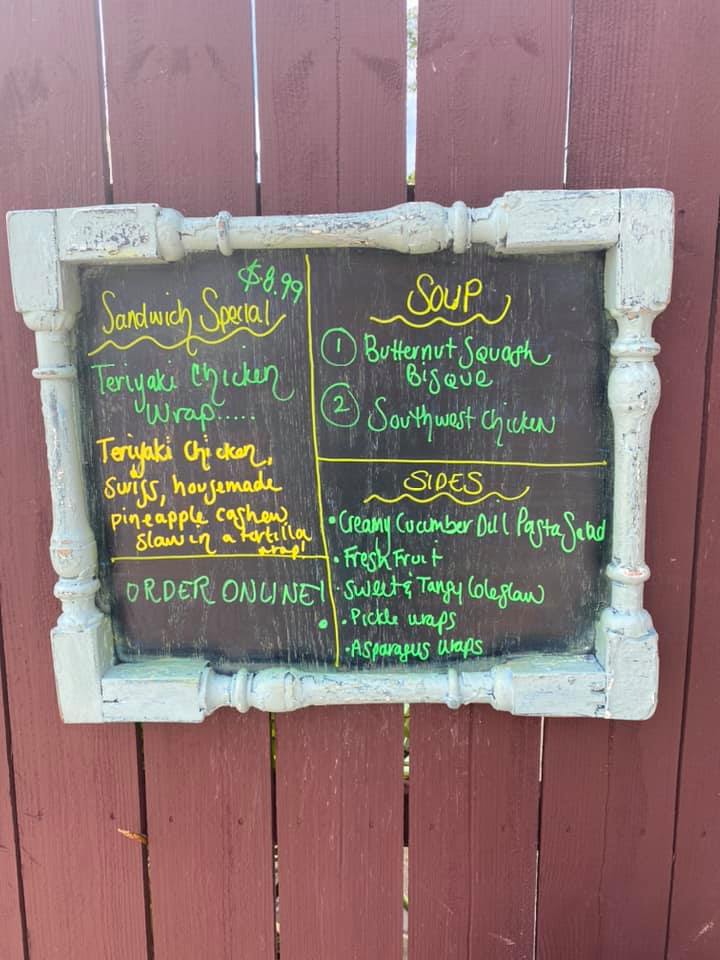 $8.99
Sandwich Special
Teriyaki Chicken
Wrap.....
Teriyaki Chicken,
Swiss, housemade
pineapple cashew
slaw in a tortilla
wrap!
ORDER ONLINE!
SOUP
1 Butternut Squash
Bisque
2 Southwest Chicken
SIDES
• Creamy Cucumber Dill Pasta Salad
• Fresh Fruit
• Sweet & Tangy Coleslaw
• Pickle wraps
• Asparagus wraps